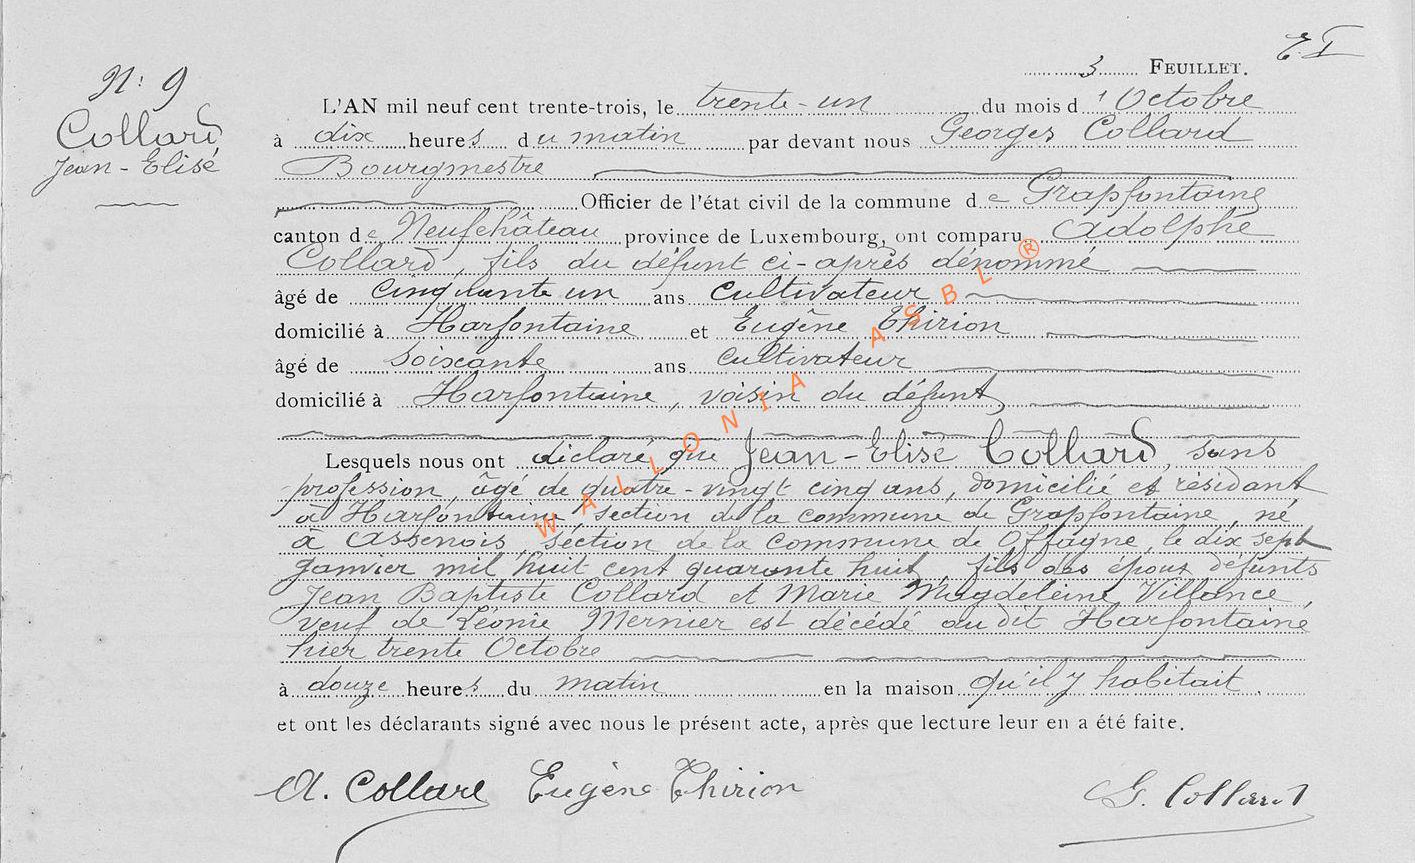 3 FEUILLET.
N: 9
Collard
Jean-Elisé
L'AN mil neuf cent trente-trois, le trente-un du mois d'Octobre
à dix heures du matin par devant nous Georges Collard
Bourgmestre
Officier de l'état civil de la commune de Grapfontaine
canton de Neufchâteau province de Luxembourg, ont comparu Adolphe
Collard, fils du défunt ci-après dénommé
âgé de cinquante un ans cultivateur
domicilié à Harfontaine et Eugène Thirion
âgé de soixante ans cultivateur
domicilié à Harfontaine, voisin du défunt
Lesquels nous ont déclaré que Jean-Elisé Collard, sans
profession, âgé de quatre-vingt cinq ans, domicilié et résidant
à Harfontaine section de la commune de Grapfontaine, né
à Assenois, séction de la commune de Offagne, le dix sept
Janvier mil huit cent quarante huit, fils des époux défunts
Jean Baptiste Collard et Marie Magdeleine Villance,
veuf de Léonie Mernier est décédé au dit Harfontaine
hier trente Octobre
à douze heures du matin en la maison qu'il y habitait.
et ont les déclarants signé avec nous le présent acte, après que lecture leur en a été faite.
A. Collard Eugène Thirion G. Collard
WALLONIA ASBL ®